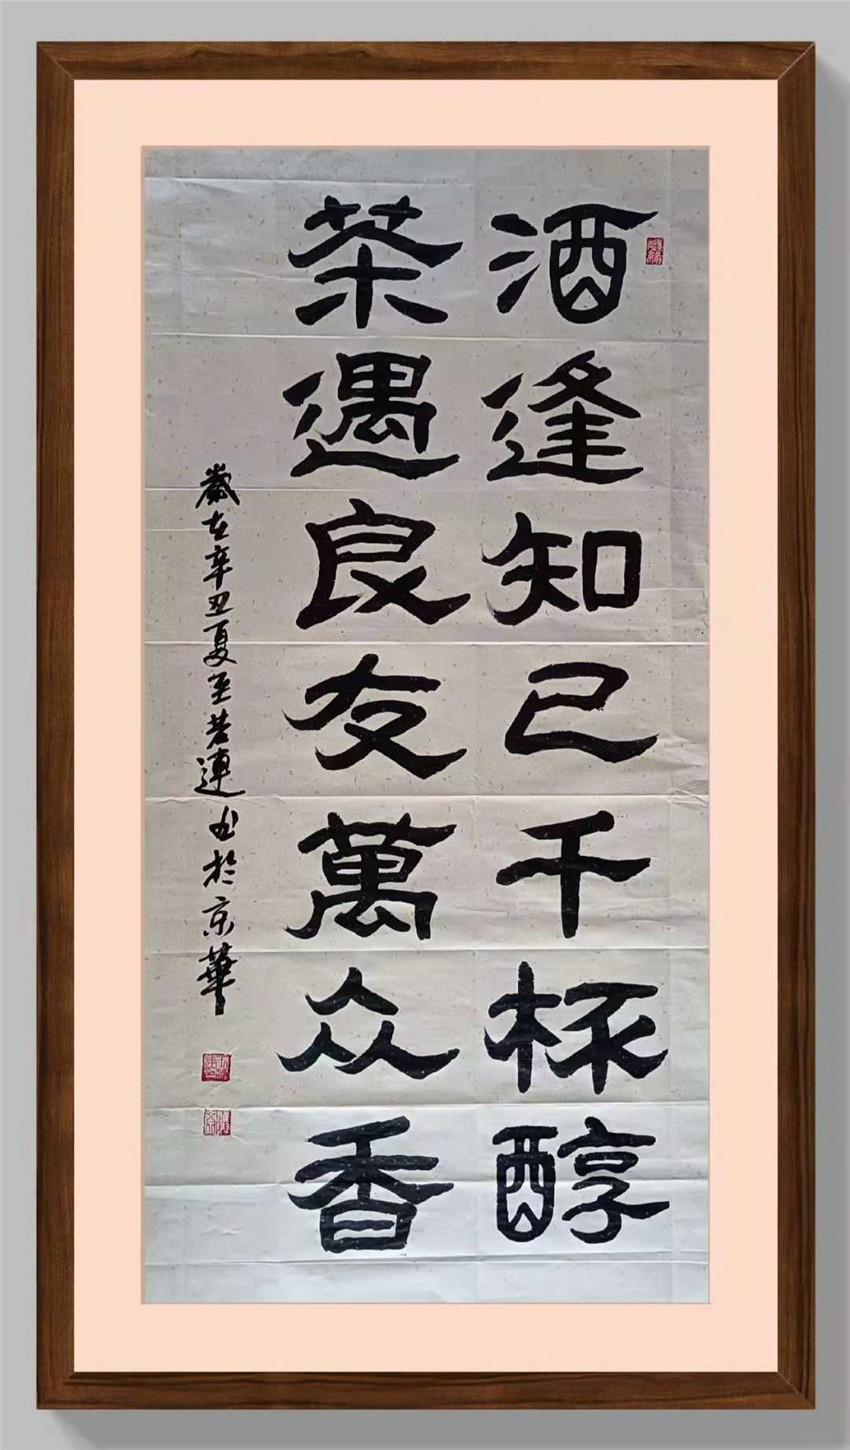 酒逢知己千杯醇
茶遇良友萬众香
歲在辛丑夏至若連书於京華